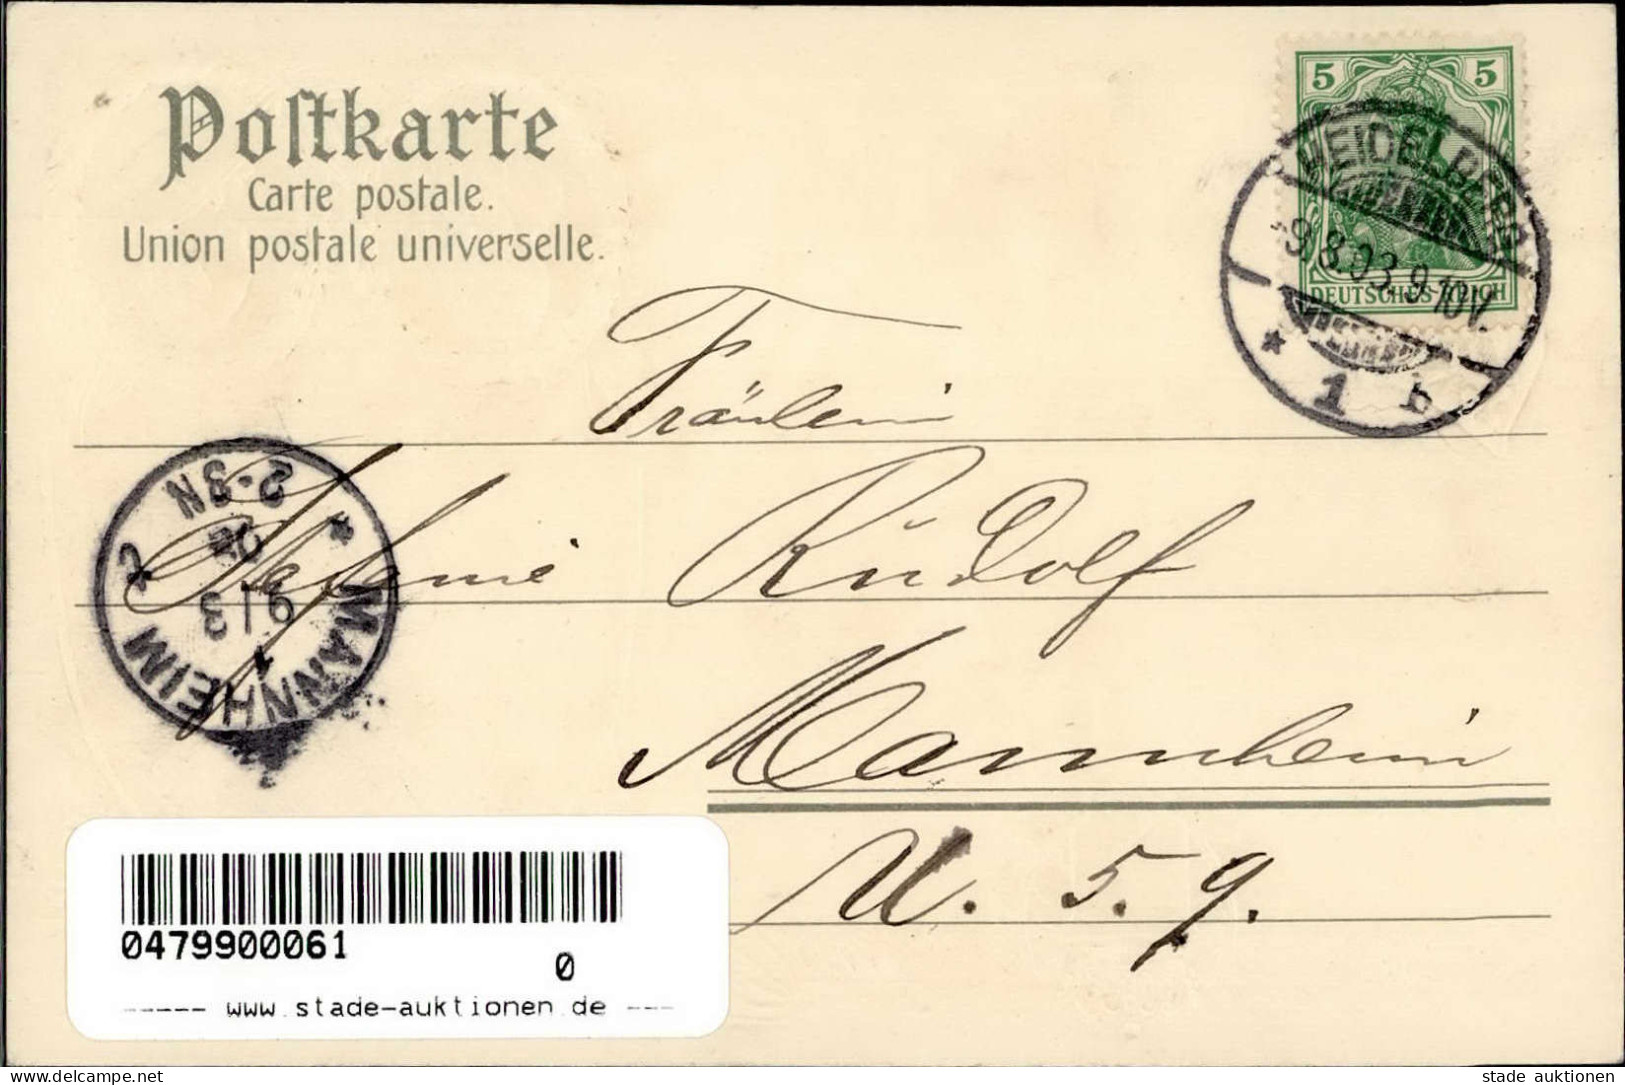 Postkarte
Carte postale.
Union postale universelle.
5 5
DEUTSCHES REICH
HEIDELBERG
9.8.03.9-10V.
* 1 b
Fräulein
Rudolf
Mannheim
U. 5. 9.
MANNHEIM
2-3N
0479900061
0
----- www.stade-auktionen.de ---
www.delcampe.net
stade auktionen